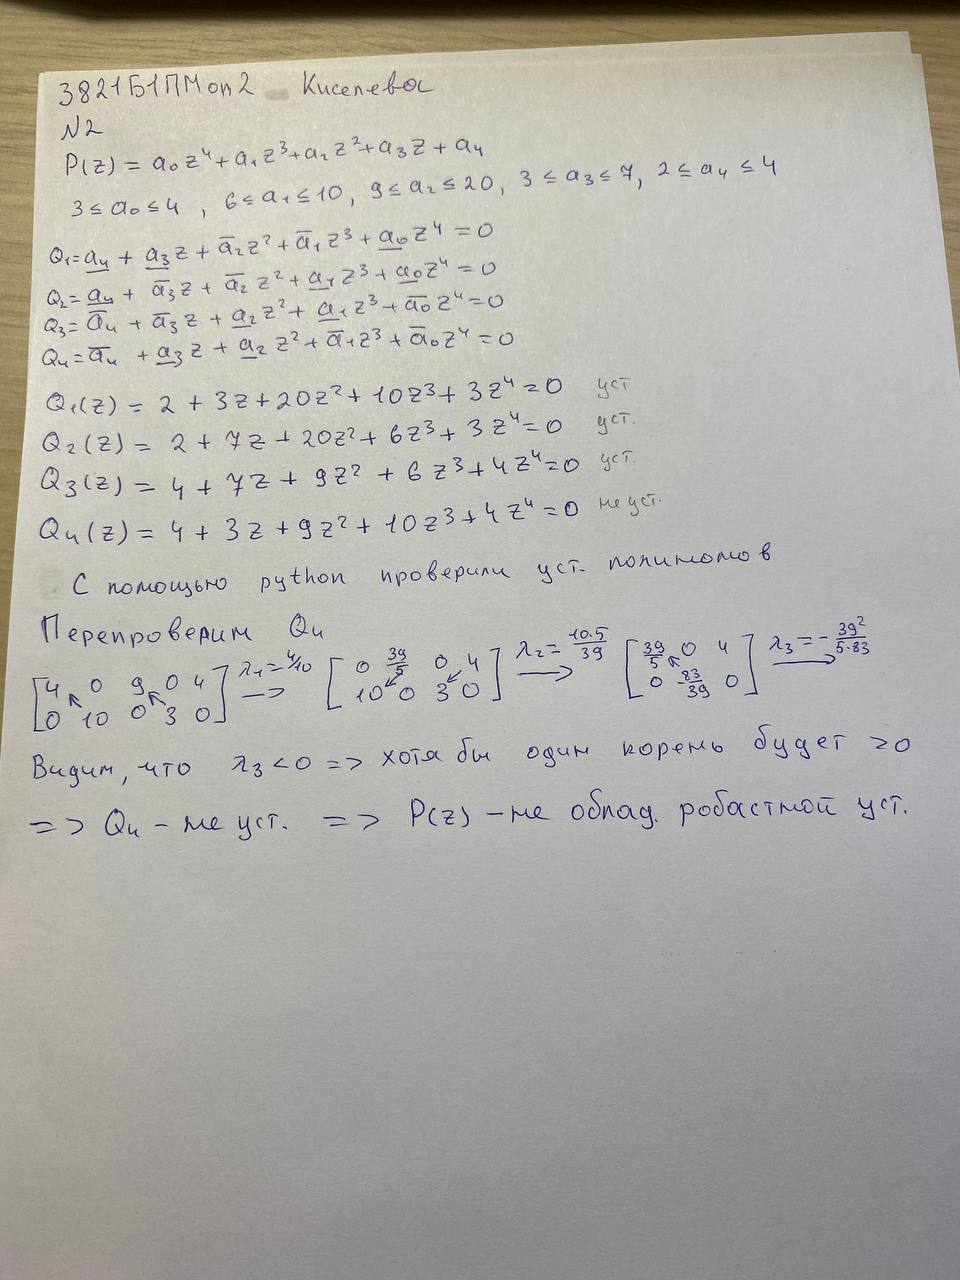 3821Б1ПМоп2 Киселевас
N2
P(z) = a₀z⁴ + a₁z³ + a₂z² + a₃z + a₄
3 ≤ a₀ ≤ 4 , 6 ≤ a₁ ≤ 10, 9 ≤ a₂ ≤ 20, 3 ≤ a₃ ≤ 7, 2 ≤ a₄ ≤ 4
Q₁ = a̲₄ + a̲₃z + a̅₂z² + a̅₁z³ + a̲₀z⁴ = 0
Q₂ = a̲₄ + a̅₃z + a̅₂z² + a̲₁z³ + a̲₀z⁴ = 0
Q₃ = a̅₄ + a̅₃z + a̲₂z² + a̲₁z³ + a̅₀z⁴ = 0
Q₄ = a̅₄ + a̲₃z + a̲₂z² + a̅₁z³ + a̅₀z⁴ = 0
Q₁(z) = 2 + 3z + 20z² + 10z³ + 3z⁴ = 0 уст
Q₂(z) = 2 + 7z + 20z² + 6z³ + 3z⁴ = 0 уст.
Q₃(z) = 4 + 7z + 9z² + 6z³ + 4z⁴ = 0 уст.
Q₄(z) = 4 + 3z + 9z² + 10z³ + 4z⁴ = 0 не уст.
С помощью python проверили уст. полиномов
Перепроверим Q₄
[4 0 9 0 4 / 0 10 0 3 0] λ₁ = 4/10 → [0 39/5 0 4 / 10 0 3 0] λ₂ = 10·5/39 → [39/5 0 4 / 0 -83/39 0] λ₃ = -39²/5·83 →
Видим, что λ₃ < 0 => хотя бы один корень будет >0
=> Q₄ - не уст. => P(z) - не облад. робастной уст.